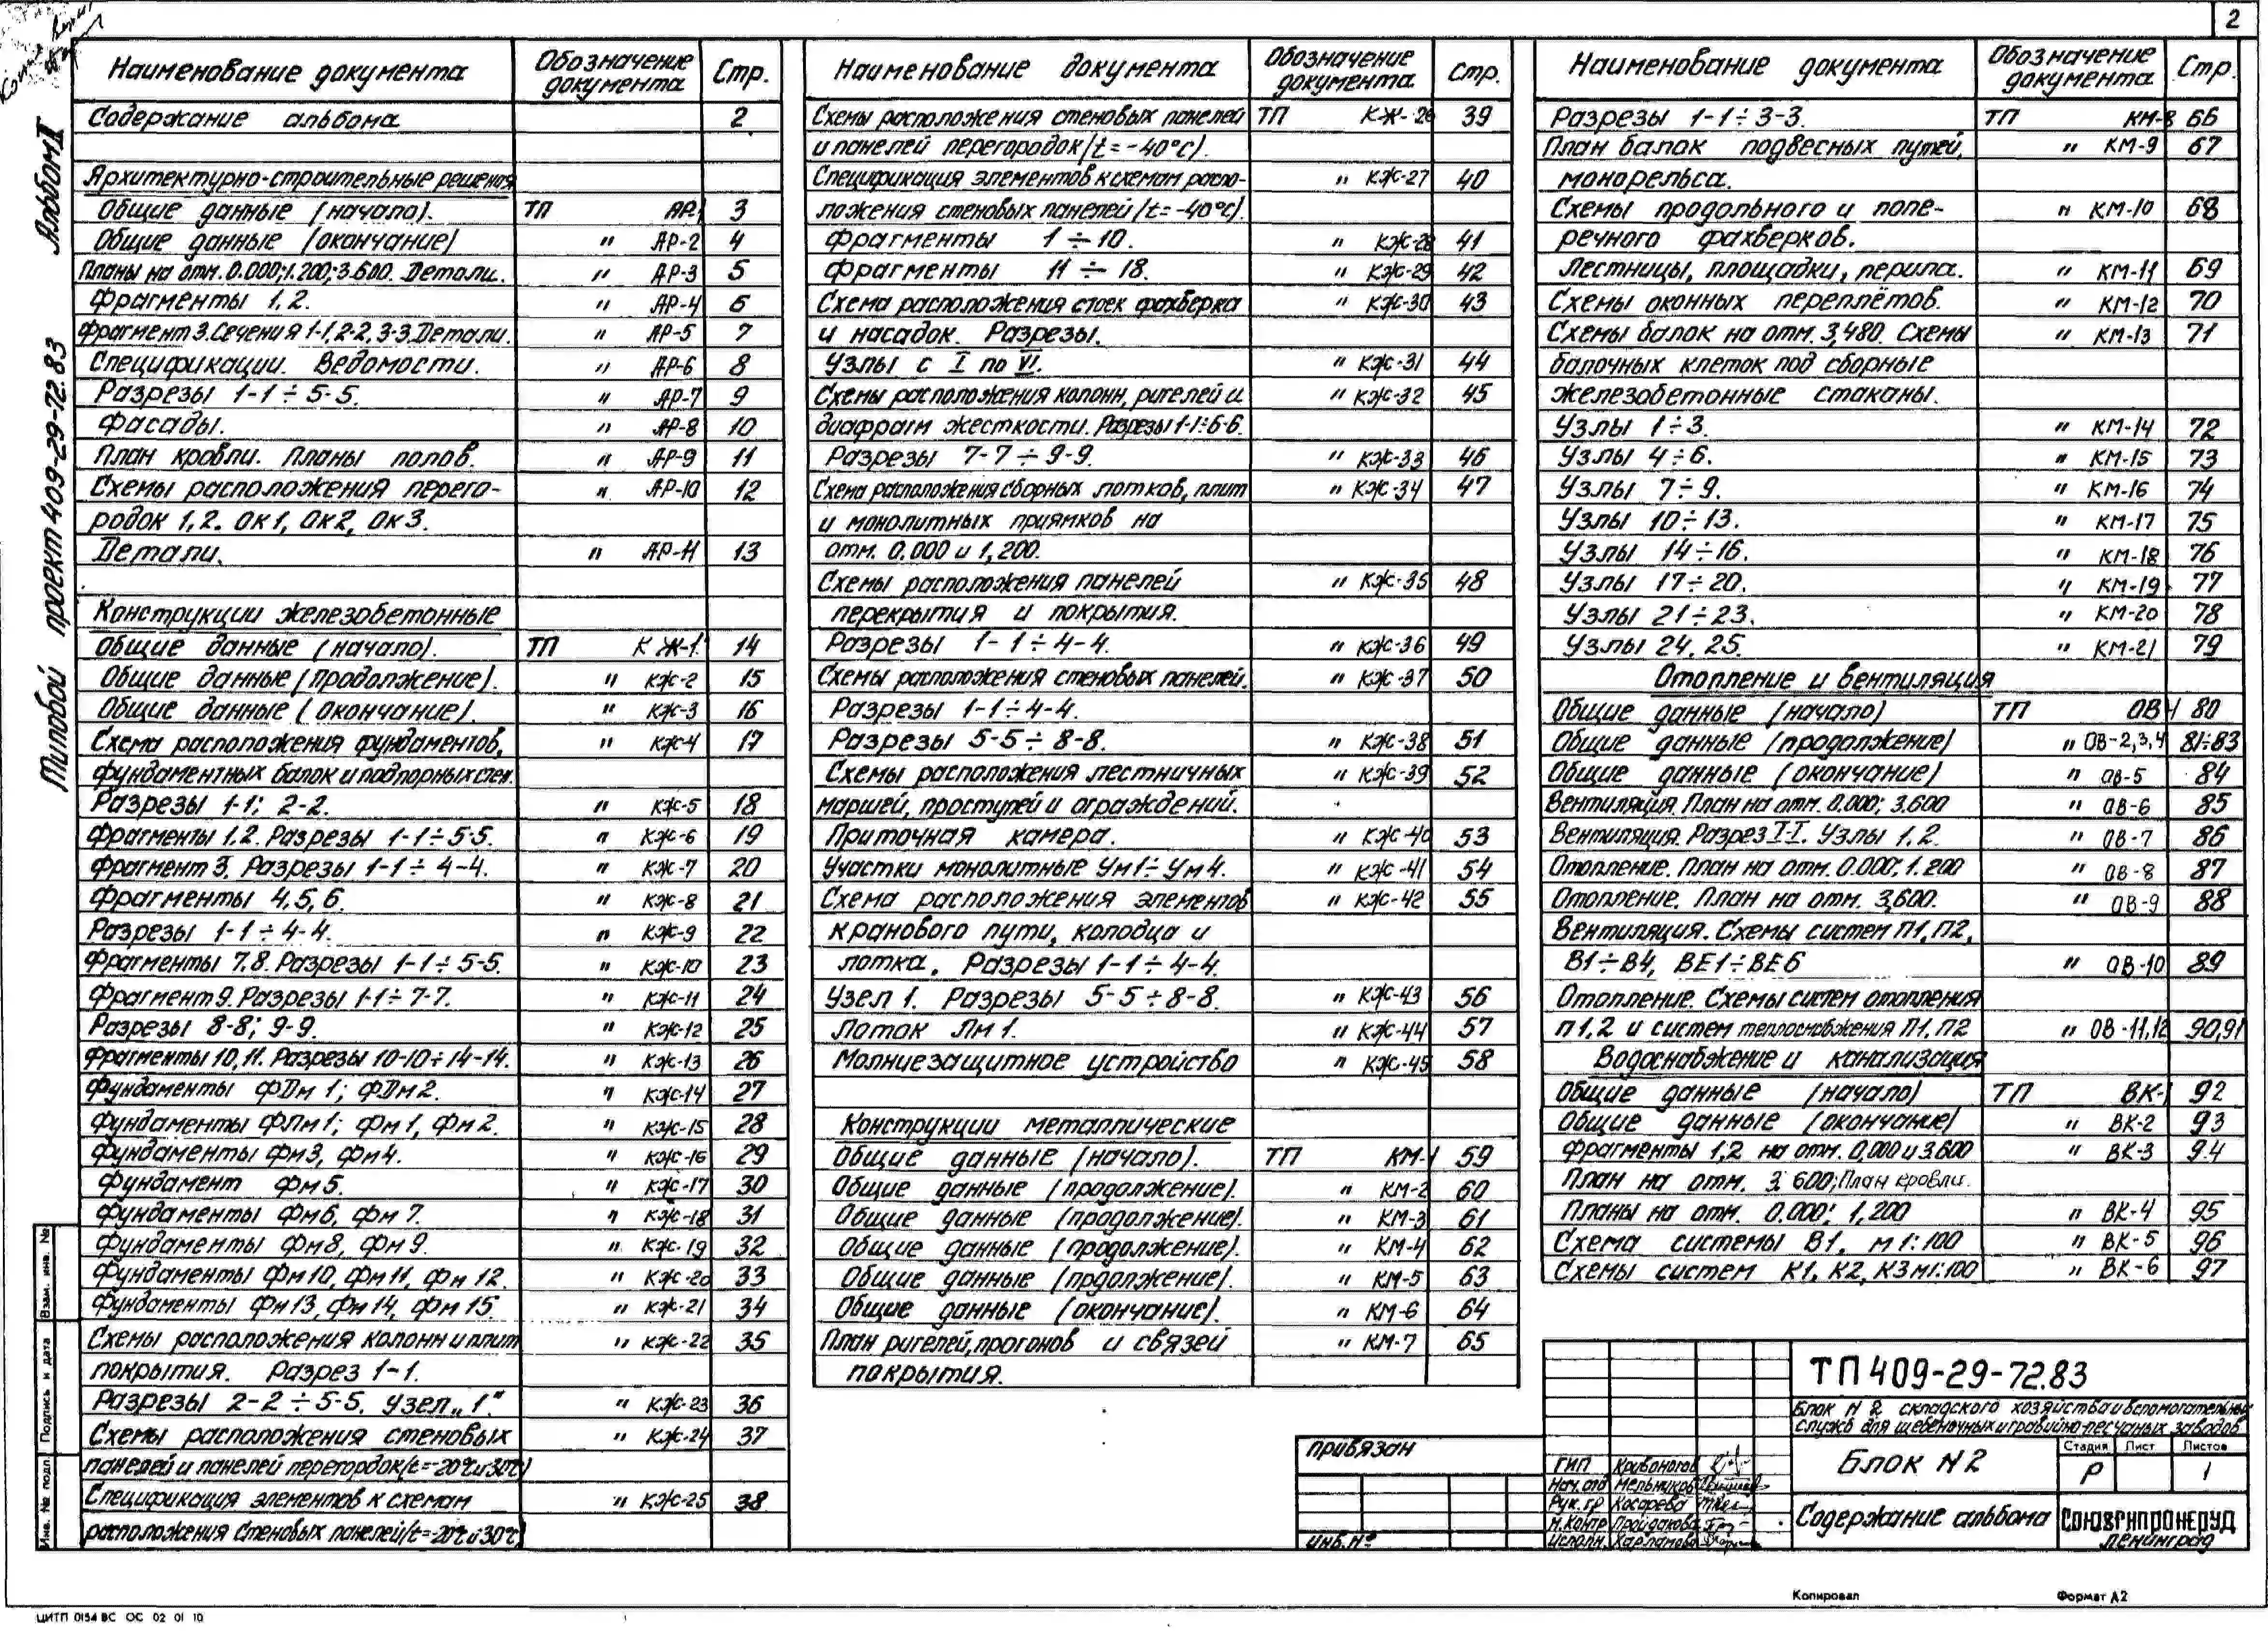 2
Альбом II
Типовой проект 409-29-72.83
Наименование документа Обозначение документа Стр.
Содержание альбома 2
Архитектурно-строительные решения
Общие данные (начало). ТП АР-1 3
Общие данные (окончание) " АР-2 4
Планы на отм. 0.000; 1.200; 3.600. Детали. " АР-3 5
Фрагменты 1,2. " АР-4 6
Фрагмент 3. Сечения 1-1, 2-2, 3-3. Детали. " АР-5 7
Спецификации. Ведомости. " АР-6 8
Разрезы 1-1÷5-5. " АР-7 9
Фасады. " АР-8 10
План кровли. Планы полов. " АР-9 11
Схемы расположения перего- " АР-10 12
родок 1,2. Ок1, Ок2, Ок3.
Детали. " АР-11 13
Конструкции железобетонные
Общие данные (начало). ТП КЖ-1 14
Общие данные (продолжение). " КЖ-2 15
Общие данные (окончание). " КЖ-3 16
Схема расположения фундаментов, " КЖ-4 17
фундаментных балок и подпорных стен.
Разрезы 1-1; 2-2. " КЖ-5 18
Фрагменты 1,2. Разрезы 1-1÷5-5. " КЖ-6 19
Фрагмент 3. Разрезы 1-1÷4-4. " КЖ-7 20
Фрагменты 4,5,6. " КЖ-8 21
Разрезы 1-1÷4-4. " КЖ-9 22
Фрагменты 7,8. Разрезы 1-1÷5-5. " КЖ-10 23
Фрагмент 9. Разрезы 1-1÷7-7. " КЖ-11 24
Разрезы 8-8; 9-9. " КЖ-12 25
Фрагменты 10,11. Разрезы 10-10÷14-14. " КЖ-13 26
Фундаменты ФДм 1; ФДм 2. " КЖ-14 27
Фундаменты ФПм 1; Фм 1, Фм 2. " КЖ-15 28
Фундаменты Фм3, Фм4. " КЖ-16 29
Фундамент Фм5. " КЖ-17 30
Фундаменты Фм6, Фм 7. " КЖ-18 31
Фундаменты Фм8, Фм 9. " КЖ-19 32
Фундаменты Фм10, Фм11, Фм 12. " КЖ-20 33
Фундаменты Фм13, Фм 14, Фм 15. " КЖ-21 34
Схемы расположения колонн и плит " КЖ-22 35
покрытия. Разрез 1-1.
Разрезы 2-2÷5-5. Узел „1." " КЖ-23 36
Схемы расположения стеновых " КЖ-24 37
панелей и панелей перегордок (t=-20°С и 30°С)
Спецификация элементов к схемам " КЖ-25 38
расположения стеновых панелей (t=-20°С и 30°С)
Наименование документа Обозначение документа Стр.
Схемы расположения стеновых панелей ТП КЖ-26 39
и панелей перегородок (t=-40°С).
Спецификация элементов к схемам распо- " КЖ-27 40
ложения стеновых панелей (t=-40°С).
Фрагменты 1÷10. " КЖ-28 41
Фрагменты 11÷18. " КЖ-29 42
Схема расположения стоек фахверка " КЖ-30 43
и насадок. Разрезы.
Узлы с I по VI. " КЖ-31 44
Схемы расположения колонн, ригелей и " КЖ-32 45
диафрагм жесткости. Разрезы 1-1÷6-6.
Разрезы 7-7÷9-9. " КЖ-33 46
Схема расположения сборных лотков, плит " КЖ-34 47
и монолитных приямков на
отм. 0.000 и 1,200.
Схемы расположения панелей " КЖ-35 48
перекрытия и покрытия.
Разрезы 1-1÷4-4. " КЖ-36 49
Схемы расположения стеновых панелей. " КЖ-37 50
Разрезы 1-1÷4-4.
Разрезы 5-5÷8-8. " КЖ-38 51
Схемы расположения лестничных " КЖ-39 52
маршей, проступей и ограждений.
Приточная камера. " КЖ-40 53
Участки монолитные Ум1÷Ум4. " КЖ-41 54
Схема расположения элементов " КЖ-42 55
кранового пути, колодца и
лотка. Разрезы 1-1÷4-4.
Узел 1. Разрезы 5-5÷8-8. " КЖ-43 56
Лоток Лм 1. " КЖ-44 57
Молниезащитное устройство " КЖ-45 58
Конструкции металлические
Общие данные (начало). ТП КМ-1 59
Общие данные (продолжение). " КМ-2 60
Общие данные (продолжение). " КМ-3 61
Общие данные (продолжение). " КМ-4 62
Общие данные (прдолжение). " КМ-5 63
Общие данные (окончание). " КМ-6 64
План ригелей, прогонов и связей " КМ-7 65
покрытия.
Наименование документа Обозначение документа Стр.
Разрезы 1-1÷3-3. ТП КМ-8 66
План балок подвесных путей, " КМ-9 67
монорельса.
Схемы продольного и попе- " КМ-10 68
речного фахверков.
Лестницы, площадки, перила. " КМ-11 69
Схемы оконных переплётов. " КМ-12 70
Схемы балок на отм. 3,480. Схемы " КМ-13 71
балочных клеток под сборные
железобетонные стаканы.
Узлы 1÷3. " КМ-14 72
Узлы 4÷6. " КМ-15 73
Узлы 7÷9. " КМ-16 74
Узлы 10÷13. " КМ-17 75
Узлы 14÷16. " КМ-18 76
Узлы 17÷20. " КМ-19 77
Узлы 21÷23. " КМ-20 78
Узлы 24, 25. " КМ-21 79
Отопление и вентиляция
Общие данные (начало) ТП ОВ-1 80
Общие данные (продолжение) " ОВ-2,3,4 81÷83
Общие данные (окончание) " ОВ-5 84
Вентиляция. План на отм. 0.000; 3.600 " ОВ-6 85
Вентиляция. Разрез I-I. Узлы 1,2. " ОВ-7 86
Отопление. План на отм. 0.000; 1.200 " ОВ-8 87
Отопление. План на отм. 3,600. " ОВ-9 88
Вентиляция. Схемы систем П1, П2,
В1÷В4, ВЕ1÷ВЕ6 " ОВ-10 89
Отопление. Схемы систем отопления
п 1,2 и систем теплоснабжения П1, П2 " ОВ-11,12 90,91
Водоснабжение и канализация
Общие данные (начало) ТП ВК-1 92
Общие данные (окончание) " ВК-2 93
Фрагменты 1,2 на отм. 0,000 и 3.600 " ВК-3 94
План на отм. 3.600; План кровли.
Планы на отм. 0.000; 1,200 " ВК-4 95
Схема системы В1. м 1:100 " ВК-5 96
Схемы систем К1, К2, К3 м1:100 " ВК-6 97
Взам. инв. №
Подпись и дата
Инв. № подл.
Привязан
Инв. №
ТП 409-29-72.83
Блок N 2 складского хозяйства и вспомогательных
служб для щебеночных и гравийно-песчаных заводов
ГИП Кривоногов
Нач. отд Мельников
Рук. гр Косарева
Н. контр Пройдакова
Исполн. Харламова
Блок N 2
Стадия Лист Листов
Р 1
Содержание альбома
СОЮЗГИПРОНЕРУД
Ленинград
Копировал Формат А2
ЦИТП 0154 ВС ОС 02 01 10